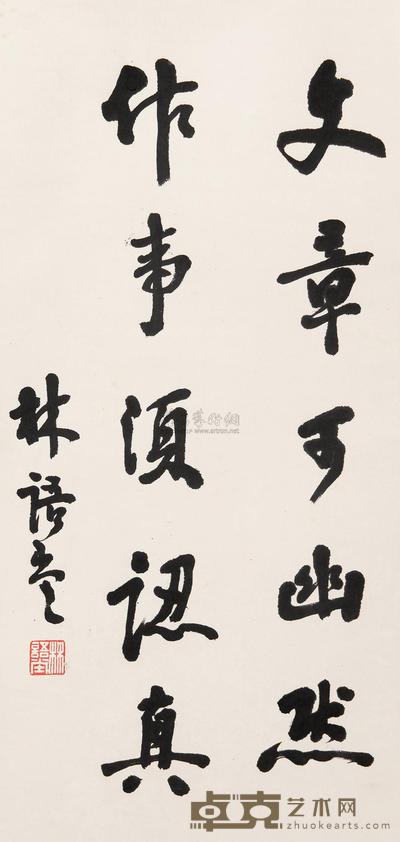 文章可幽默
作事須認真
林語堂
林語堂
www.artron.net
卓克艺术网
zhuokearts.com